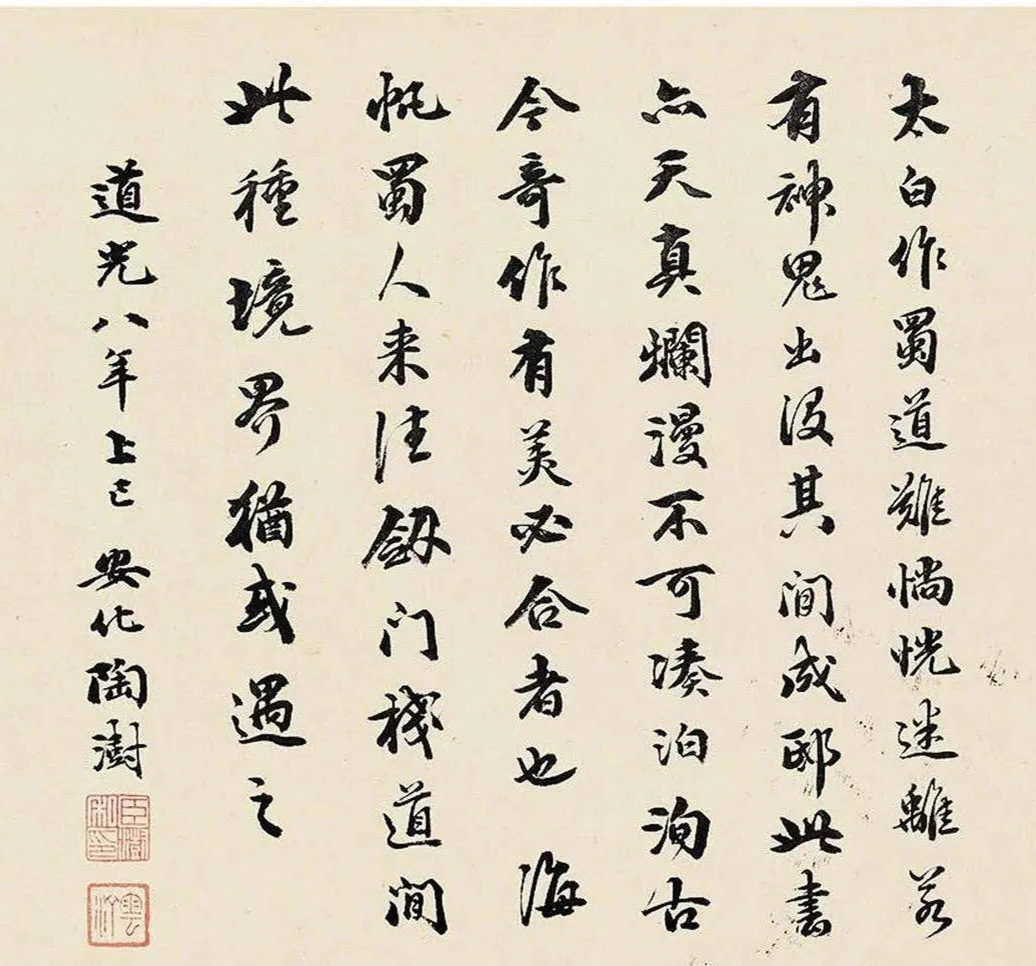 太白作蜀道難惝恍迷離若
有神鬼出没其間成邸此書
亦天真爛漫不可湊泊洵古
今奇作有美必合者也 海
帆蜀人来往劔门棧道間
此種境界猶或遇之
道光八年上巳 安化陶澍
臣澍私印
雲汀